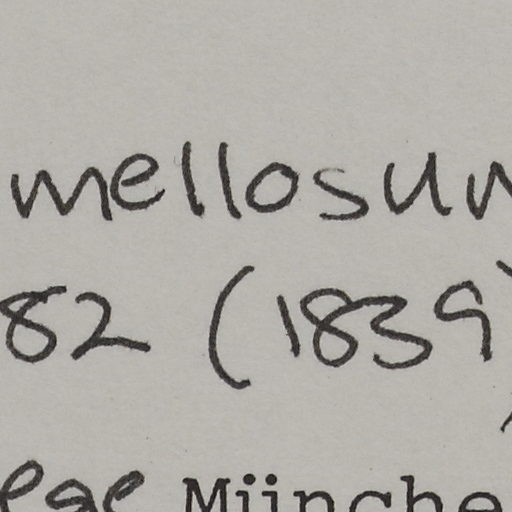 mellosum
82 (1839)
eae Münche